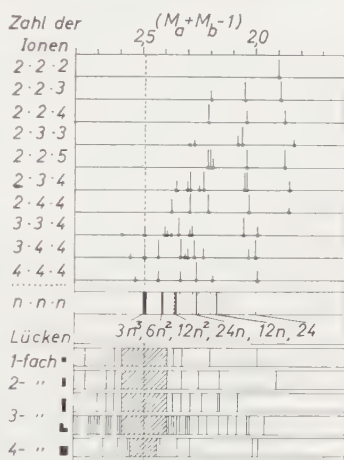 Zahl der (Mₐ+M_b-1)
Ionen 2,5 2,0
2·2·2
2·2·3
2·2·4
2·3·3
2·2·5
2·3·4
2·4·4
3·3·4
3·4·4
4·4·4
n·n·n
3n³, 6n², 12n², 24n, 12n, 24
Lücken
1-fach
2- "
3- "
4- "